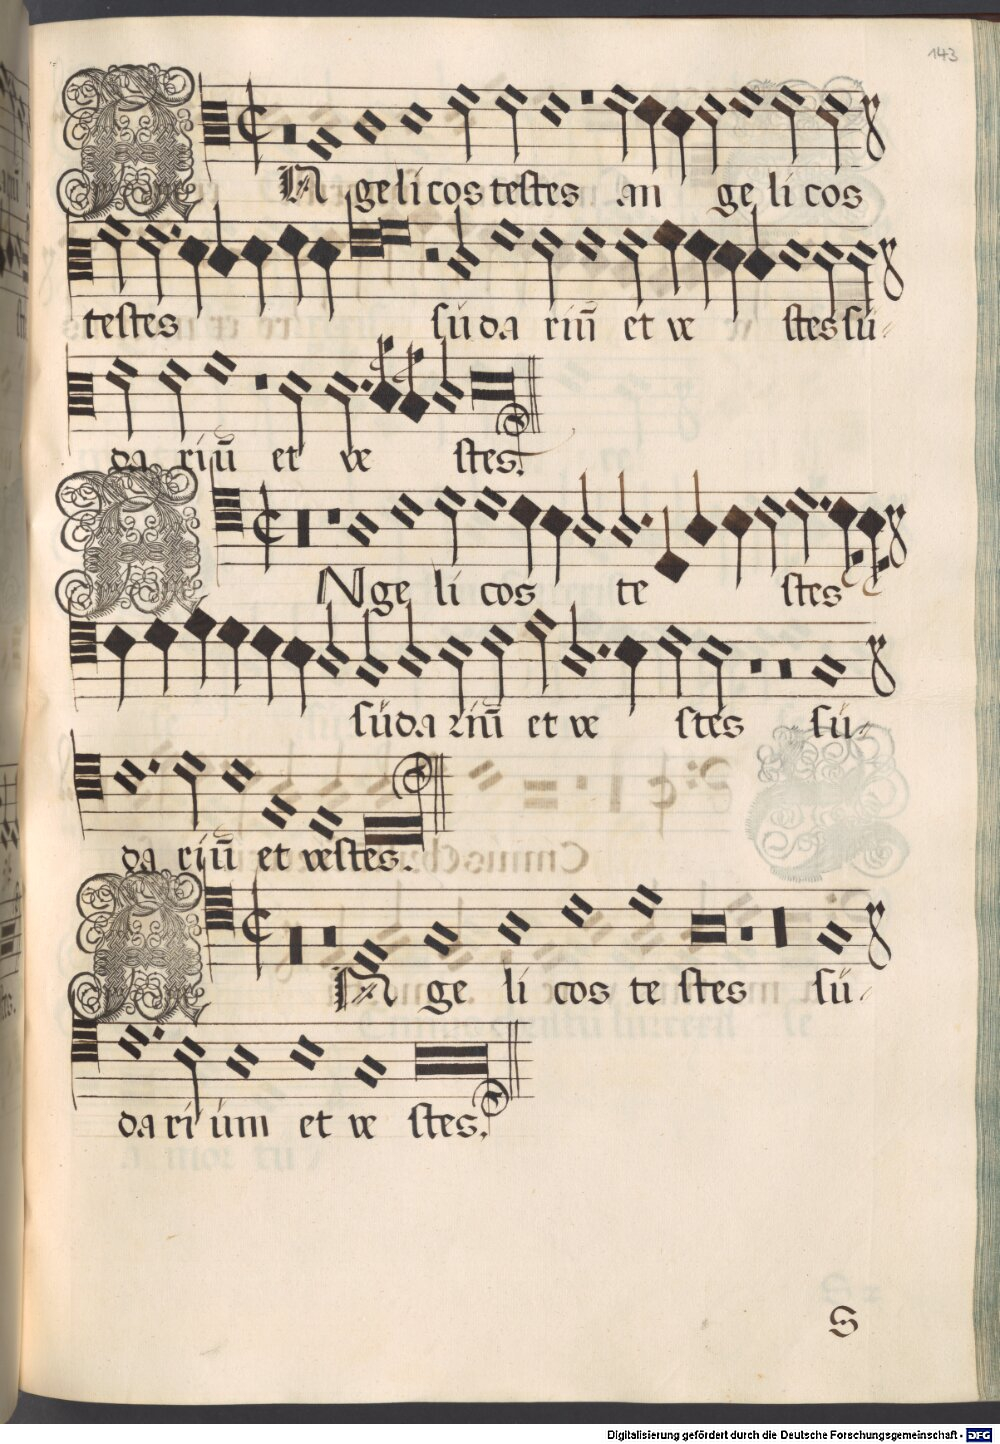 143
AN ge li cos testes an ge li cos
testes su da riū et ve stes su-
da riū et ve stes.
ANge li cos te stes
su da riū et ve stes su-
da riū et vestes.
AN ge li cos te stes su-
da ri um et ve stes.
S
Digitalisierung gefördert durch die Deutsche Forschungsgemeinschaft - DFG